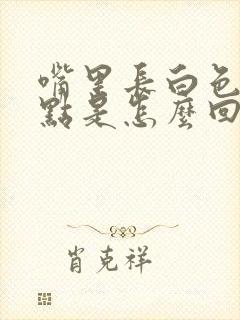 嘴里長白色
點是怎麼回
肖克祥